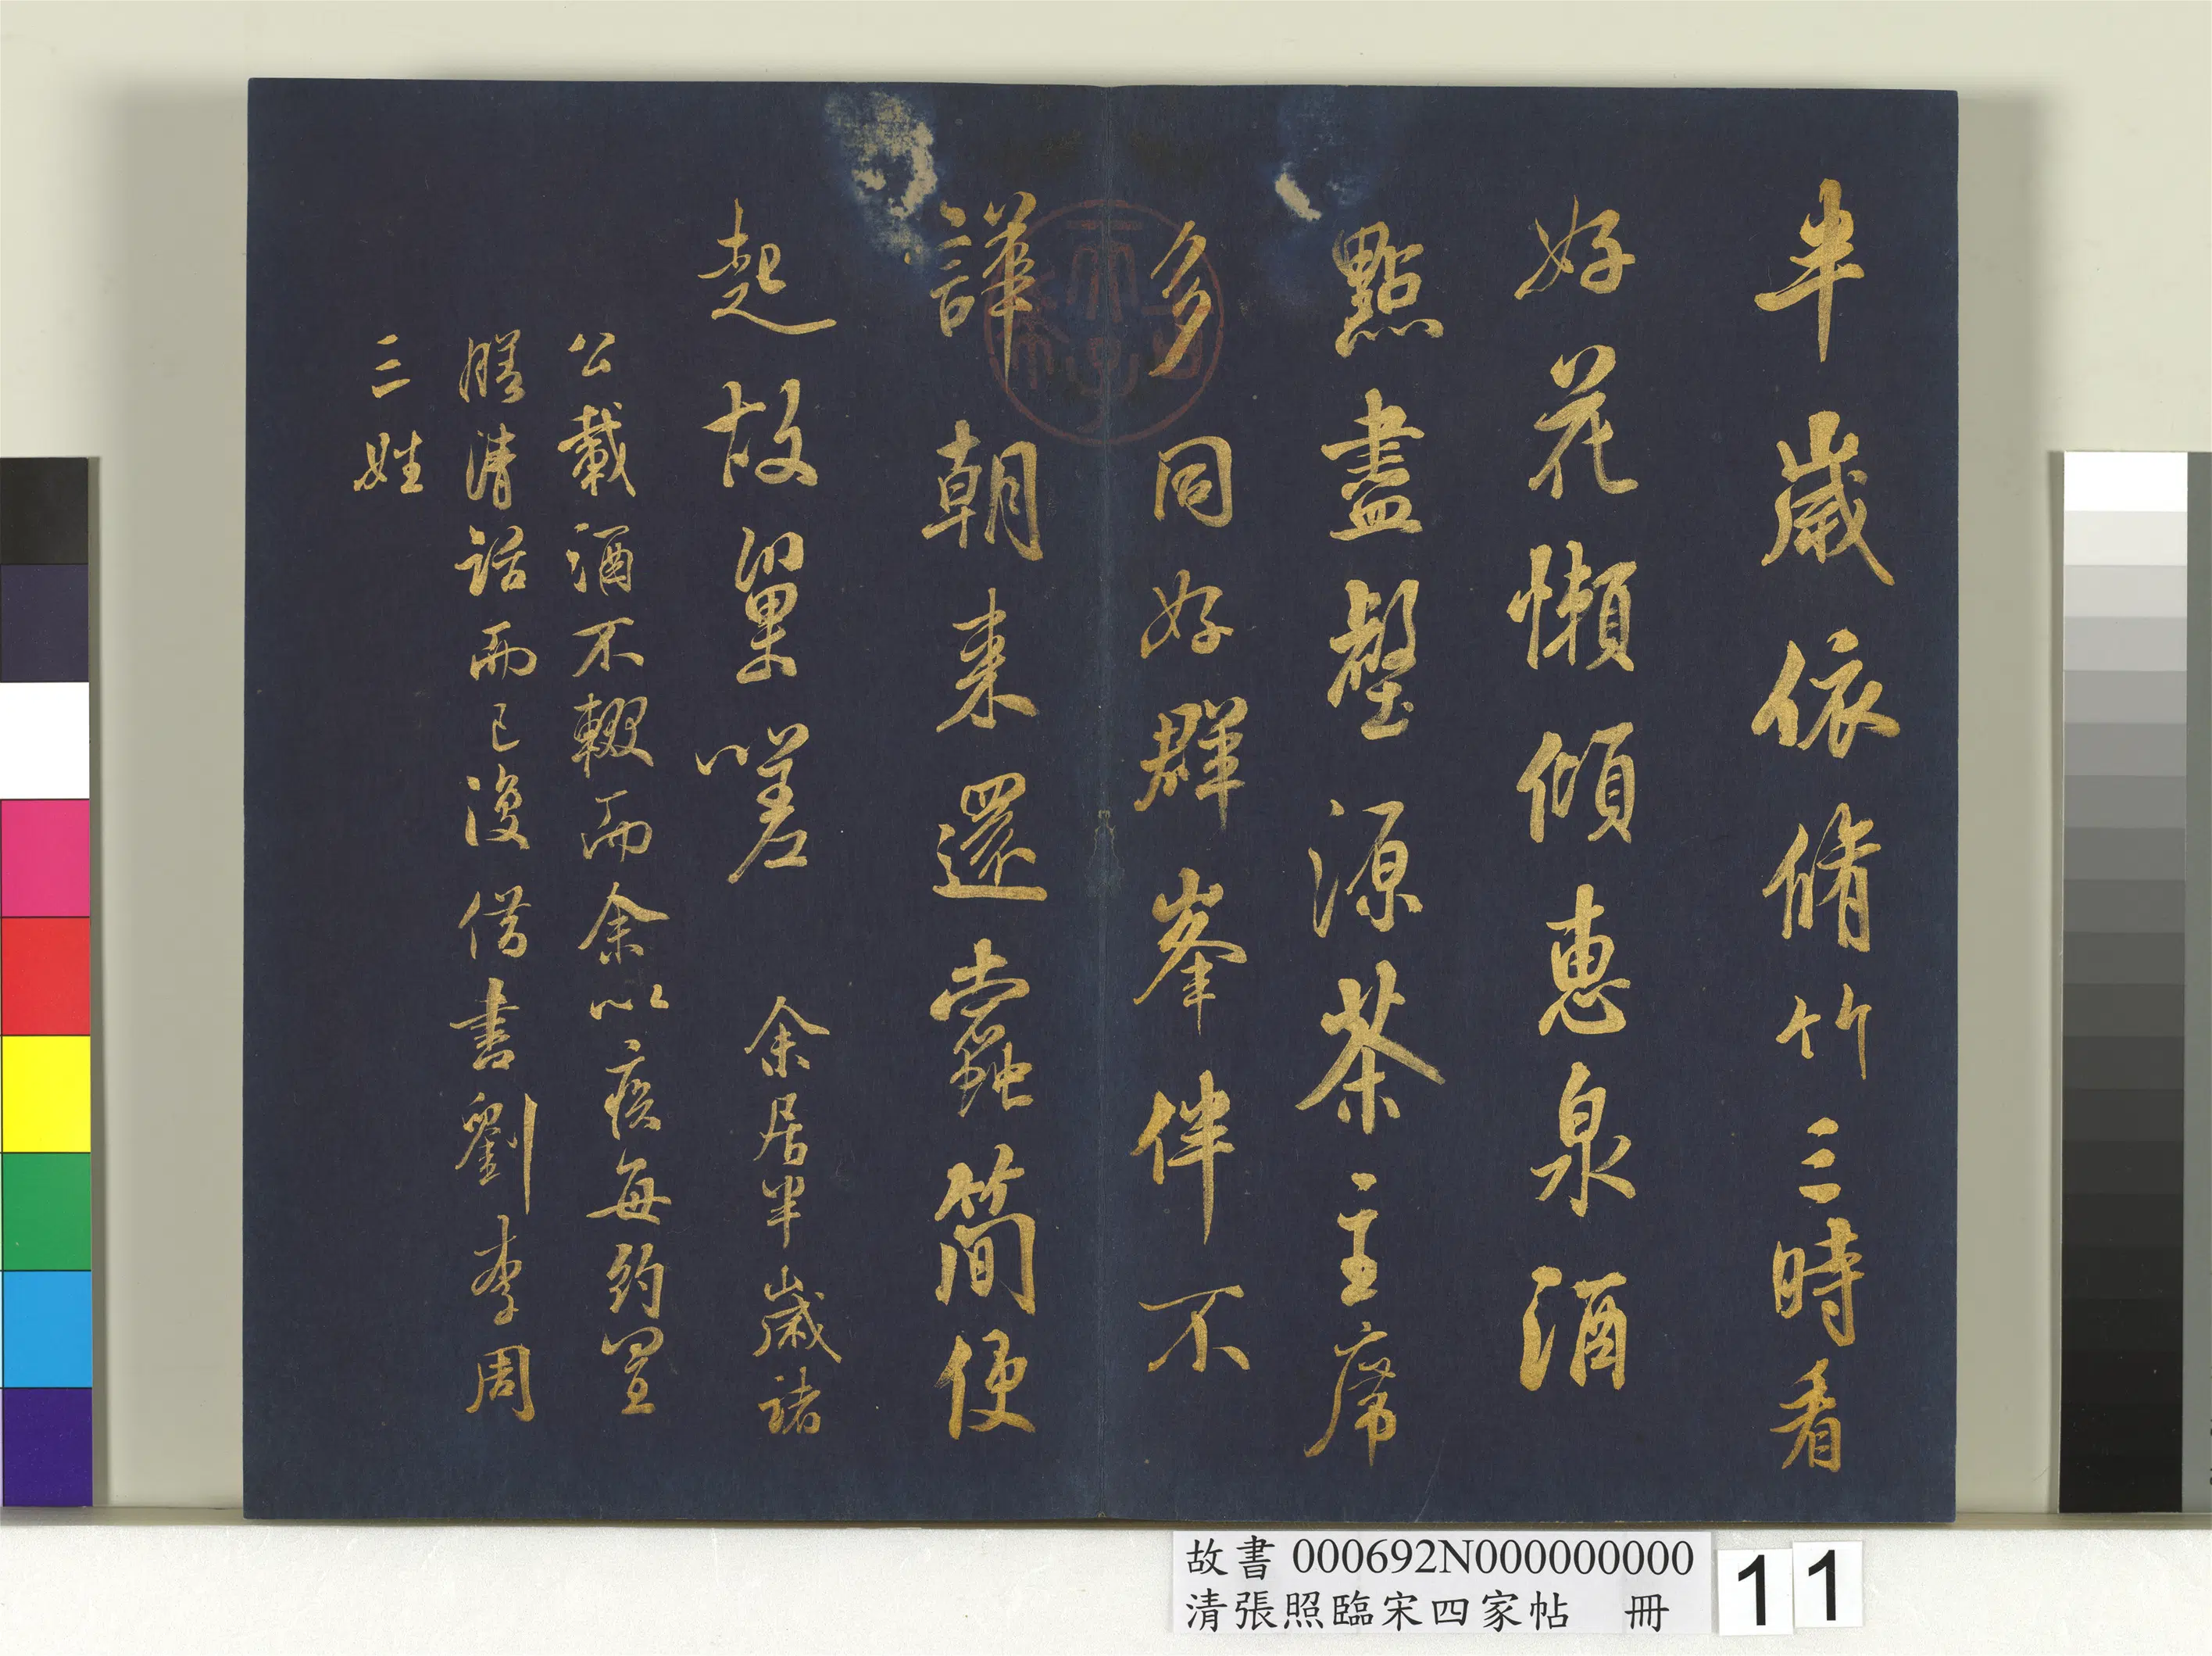 半歲依脩竹三時看
好花懶傾惠泉酒
點盡壑源茶主席
多同好群峯伴不
譁朝来還蠹簡便
起故巢嗟 余居半歲諸
公載酒不輟而余以疾每約置
膳清話而已復借書劉李周
三姓
古希天子
故書 000692N000000000
清張照臨宋四家帖 冊
11